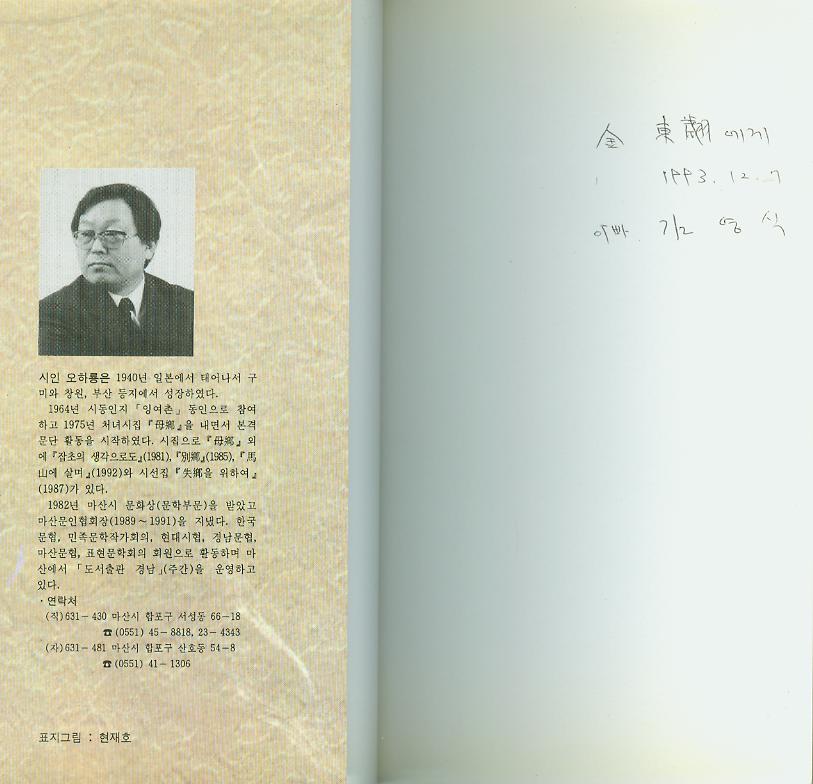 시인 오하룡은 1940년 일본에서 태어나서 구
미와 창원, 부산 등지에서 성장하였다.
1964년 시동인지 「잉여촌」 동인으로 참여
하고 1975년 처녀시집 『母鄕』을 내면서 본격
문단 활동을 시작하였다. 시집으로 『母鄕』 외
에 『잡초의 생각으로도』(1981), 『別鄕』(1985), 『馬
山에 살며』(1992)와 시선집 『失鄕을 위하여』
(1987)가 있다.
1982년 마산시 문화상(문학부문)을 받았고
마산문인협회장(1989~1991)을 지냈다. 한국
문협, 민족문학작가회의, 현대시협, 경남문협,
마산문협, 표현문학회의 회원으로 활동하며 마
산에서 「도서출판 경남」(주간)을 운영하고
있다.
· 연락처
(직)631-430 마산시 합포구 서성동 66-18
☎(0551) 45-8818, 23-4343
(자)631-481 마산시 합포구 산호동 54-8
☎(0551) 41-1306
표지그림 : 현재호
金 東 에게
1993. 12. 7
아빠 김 영 식